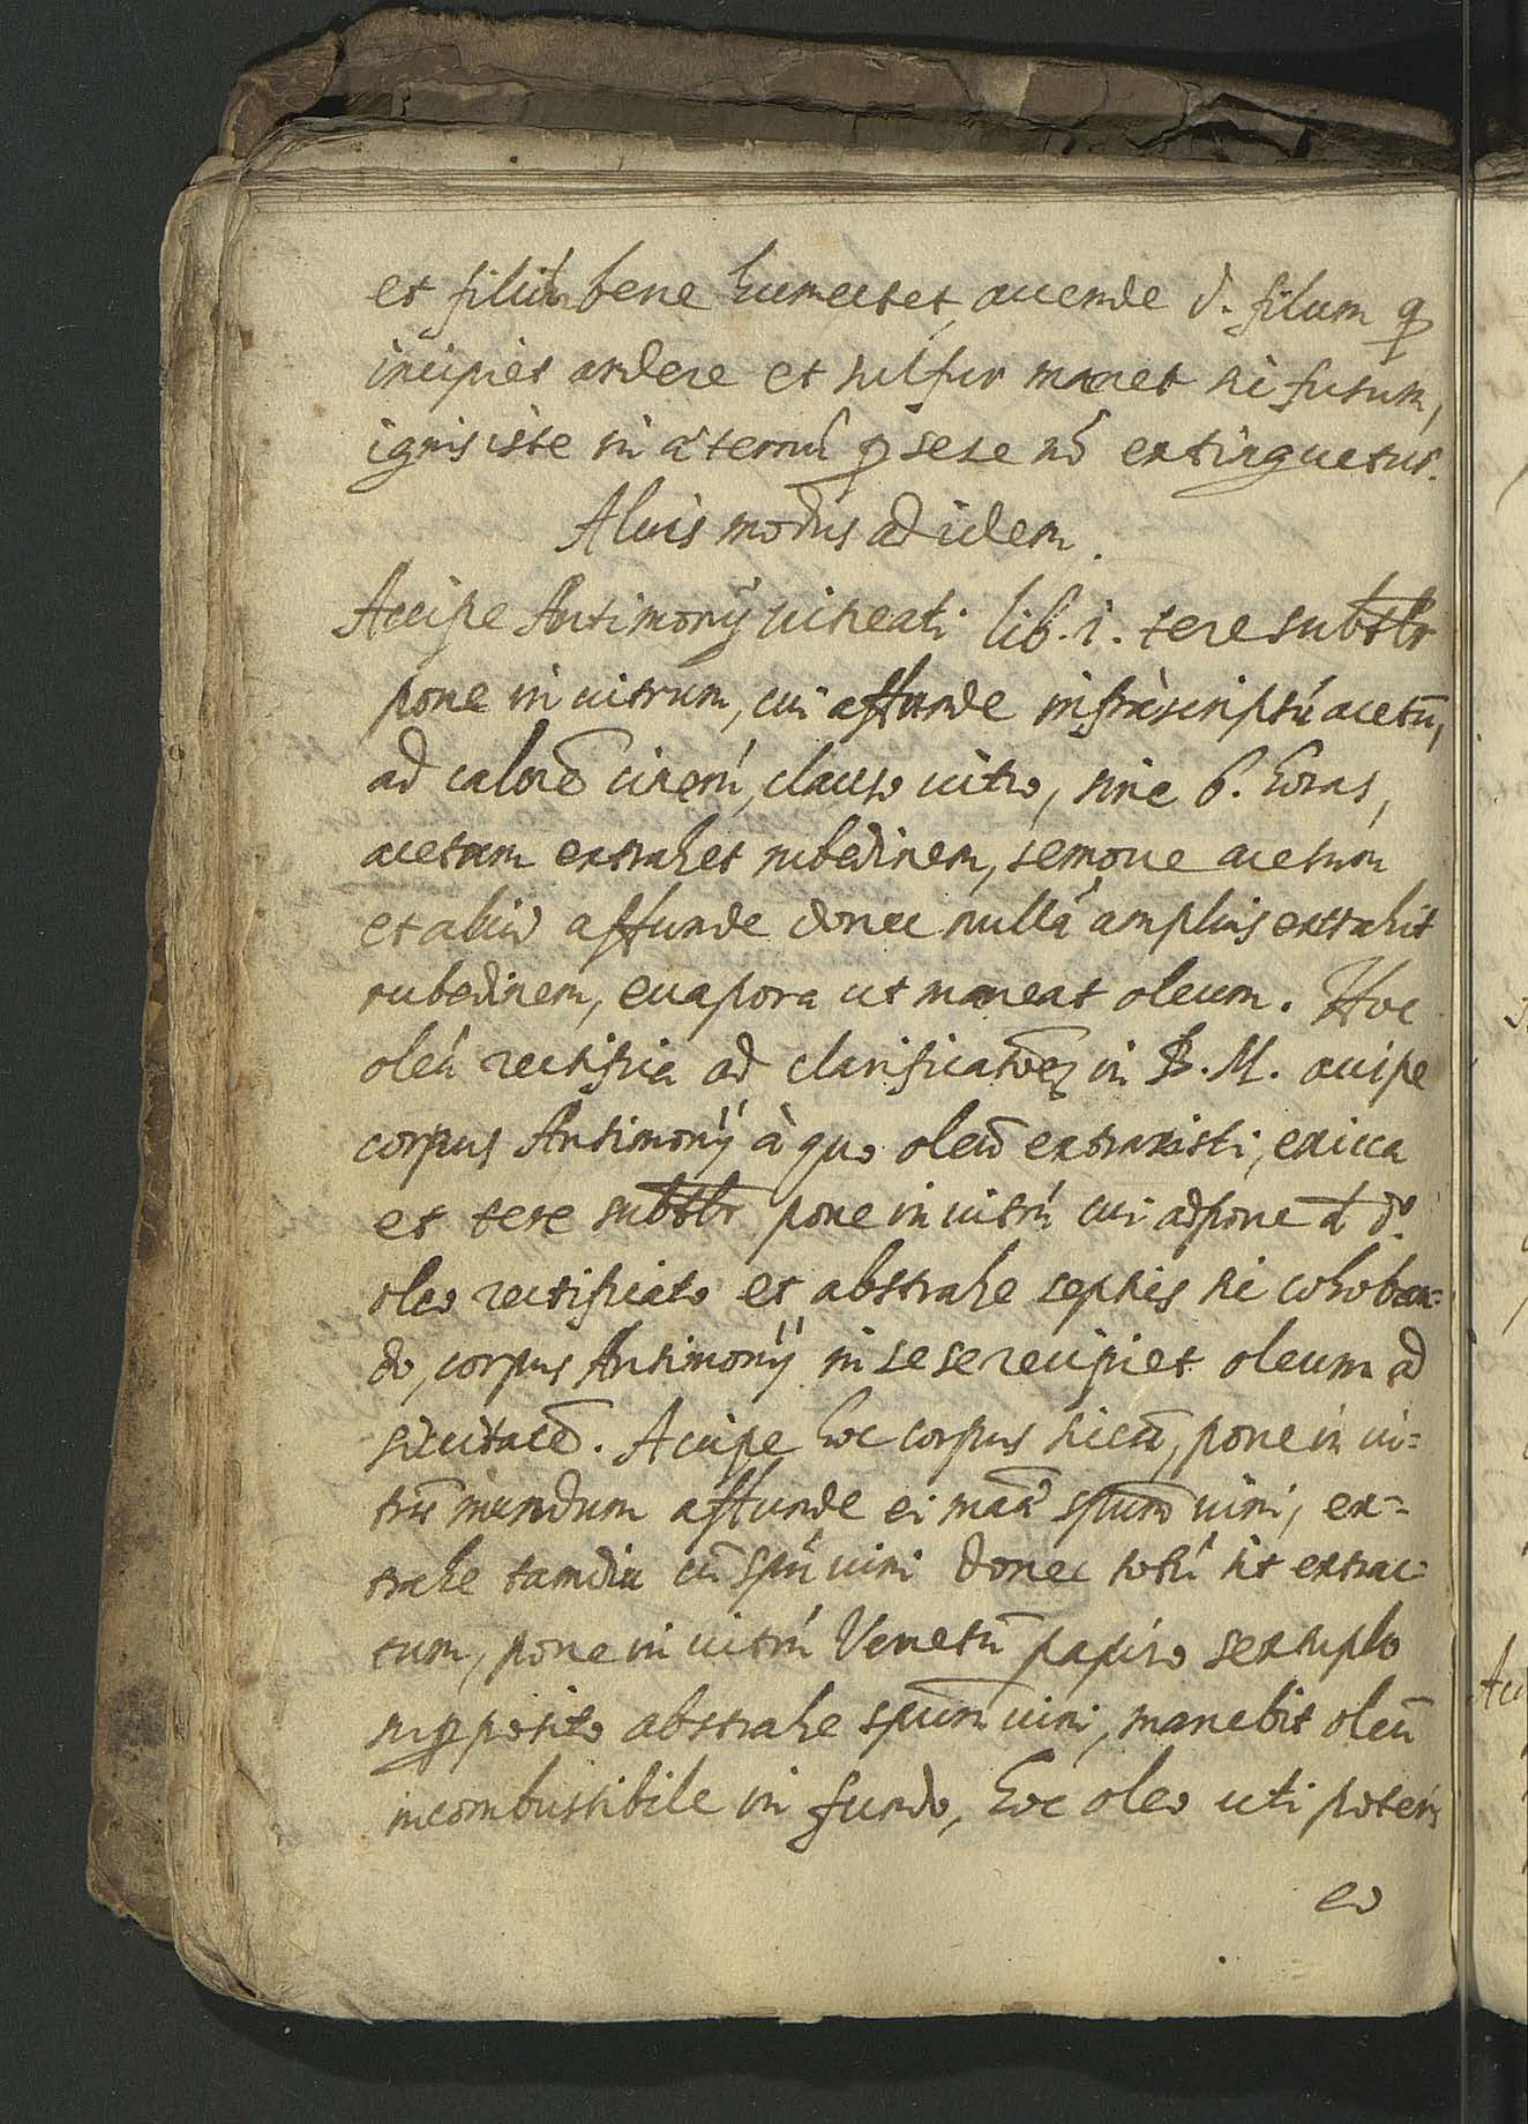 et filum bene humectet, accende d. filum q
incipiet ardere et sulfur manet sic fusum,
ignis iste in aeternũ p sese nõ extinguetur.
Alius modus ad idem.
Accipe Antimonij vitreati lib. 1. tere subtilr
pone in vitrum, cui affunde infrascriptũ acetũ,
ad calorẽ cinerũ, clauso vitro, sine 6. horas,
acetum extrahet rubedinem, remove acetum
et aliud affunde donec nullã amplius extrahit
rubedinem, euapora ut maneat oleum. Hoc
oleũ rectifica ad clarificatõẽ in B. M. accipe
corpus Antimonij à quo oleũ extraxisti, exicca
et tere subtilr pone in vitrũ cui adpone de dº.
oleo rectificato et abstrahe septies sic cohoban=
do, corpus Antimonij in sese recipiet oleum ad
siccitatẽ. Accipe hoc corpus siccũ, pone in vi=
trũ mundum affunde ei spũm vini, ex=
trahe tamdiu cũ spũ vini donec totũ sit extrac=
tum, pone in vitrũ Venetũ papiro sextuplo
supposito abstrahe spũm vini, manebit oleũ
incombustibile in fundo, hoc oleo uti poteris
eo
Acc